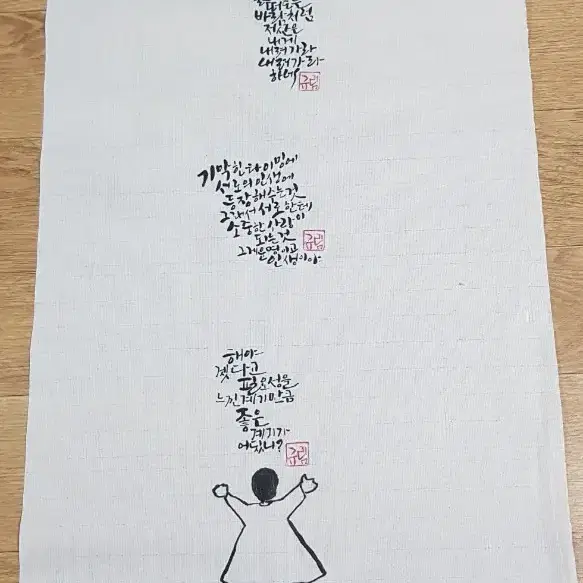 바람처럼
저산은
내게
내려가라
내려가라
하네
기막힌 타이밍에
서로의 인생에
등장해주는것
그래서 서로한테
소중한 사람이
되는것
그게 운명이고
인생이야
해야
겠다고
필요성을
느낀계기만큼
좋은
계기가
어딨니?